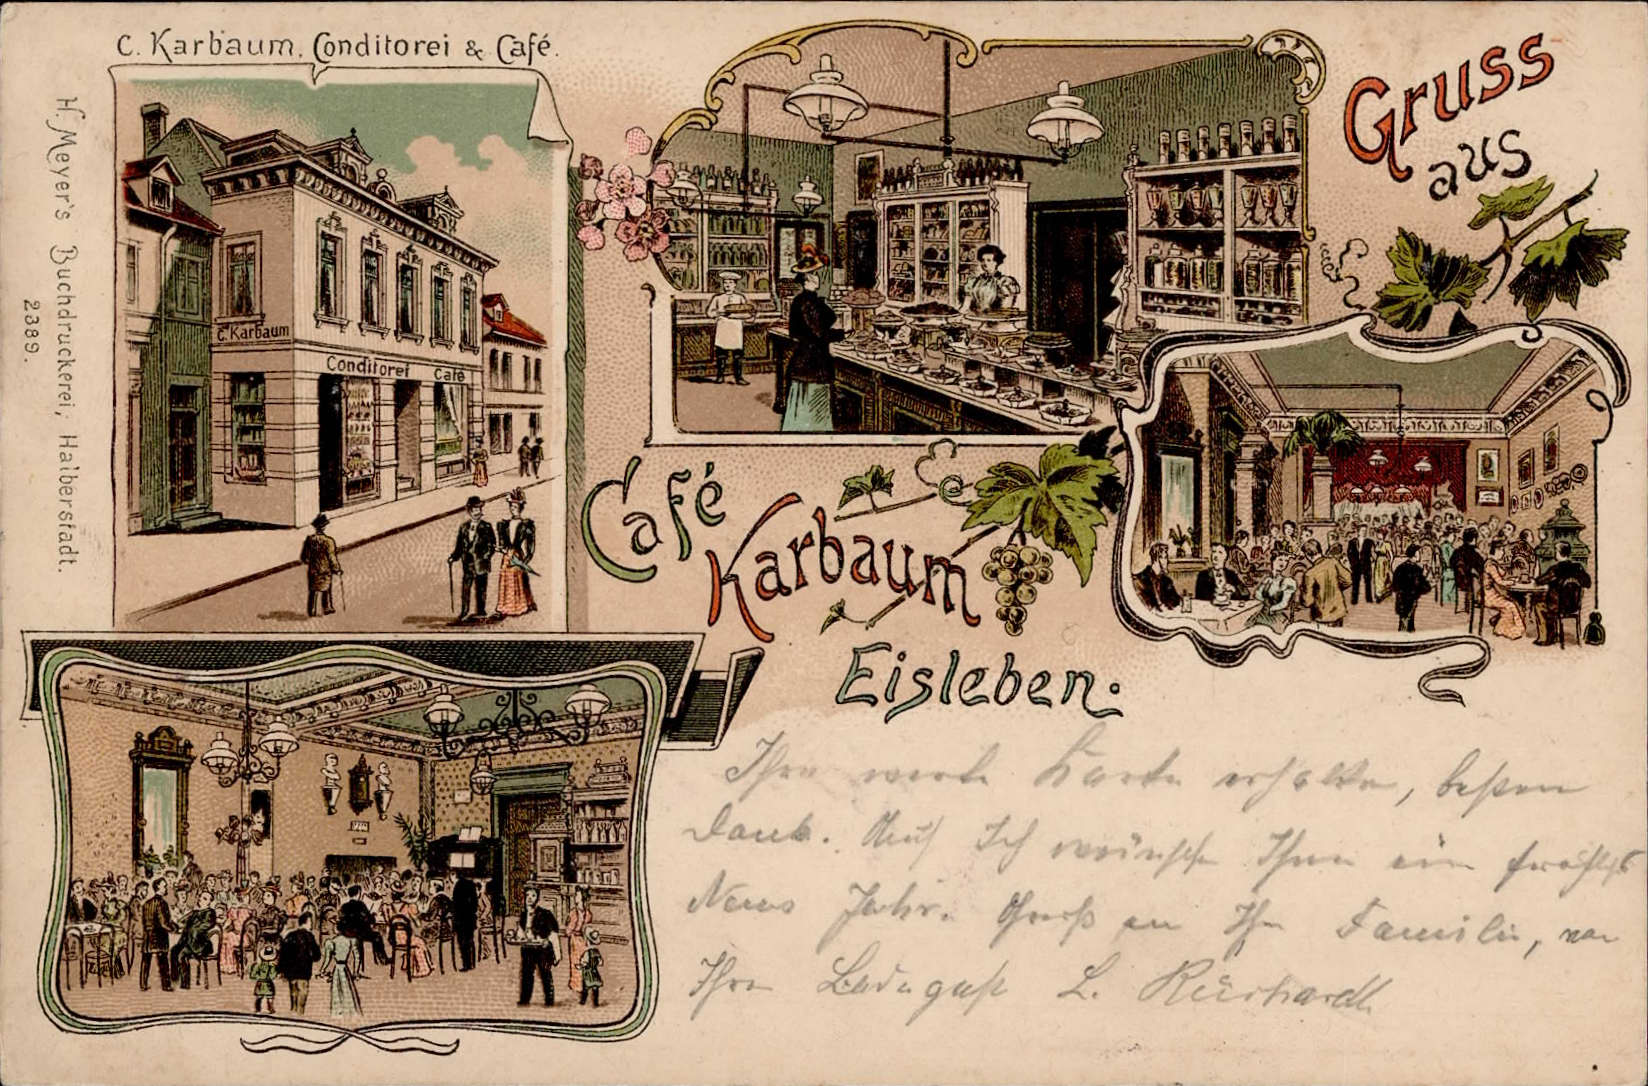 C. Karbaum, Conditorei & Café.
Gruss
aus
H. Meyer's Buchdruckerei, Halberstadt.
2389.
C. Karbaum
Conditorei Café
Café
Karbaum
Eisleben.
Ihre werte Karte erhalten, besten
Dank. Auch Ich wünsche Ihnen ein fröhliches
Neues Jahr. Gruß an Ihre Familie, von
Ihre Badegast L.